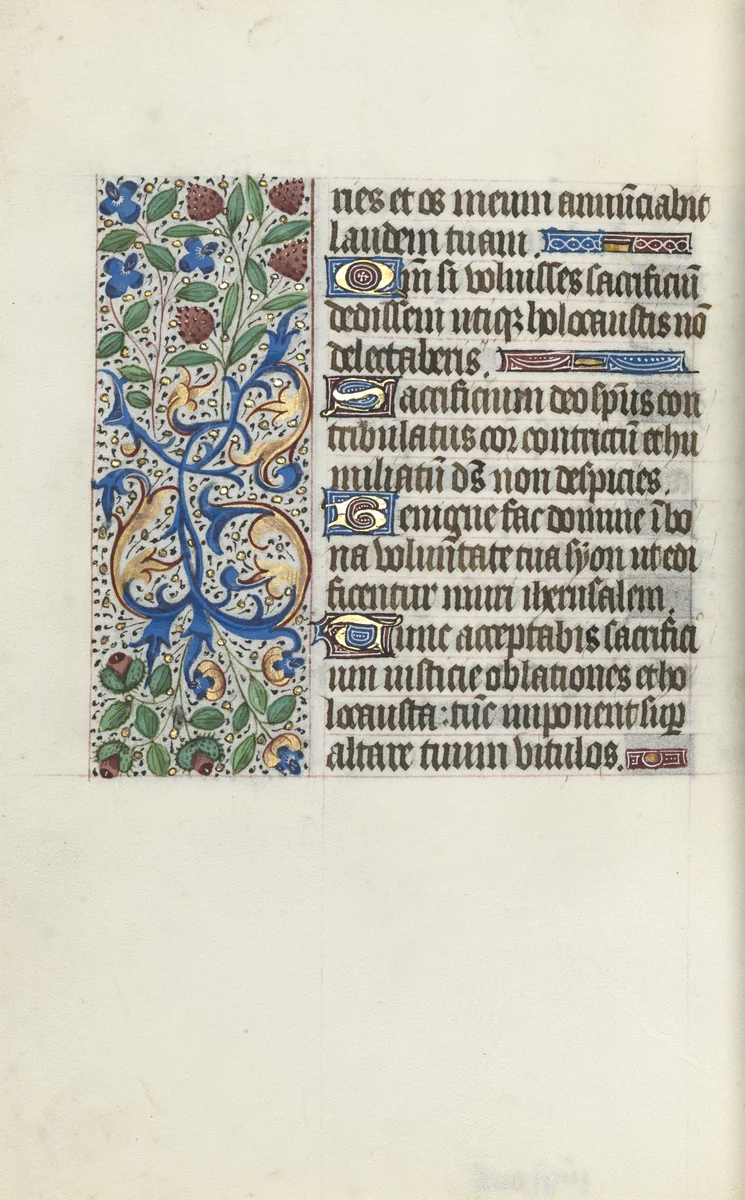 ries et os meum annūciabit
laudem tuam.
Qm̄ si voluisses sacrificiū
dedissem utiqꝫ holocaustis nō
delectaberis.
Sacrificium deo sp̄us con
tribulatus cor contritū et hu
miliatū ds̄ non despicies.
Benigne fac domine ī bo
na volun̄tate tua syon ut edi
ficentur muri iherusalem.
Tunc acceptabis sacrifici
um iusticie oblationes et ho
locausta : tūc imponent sup̄
altare tuum vitulos.